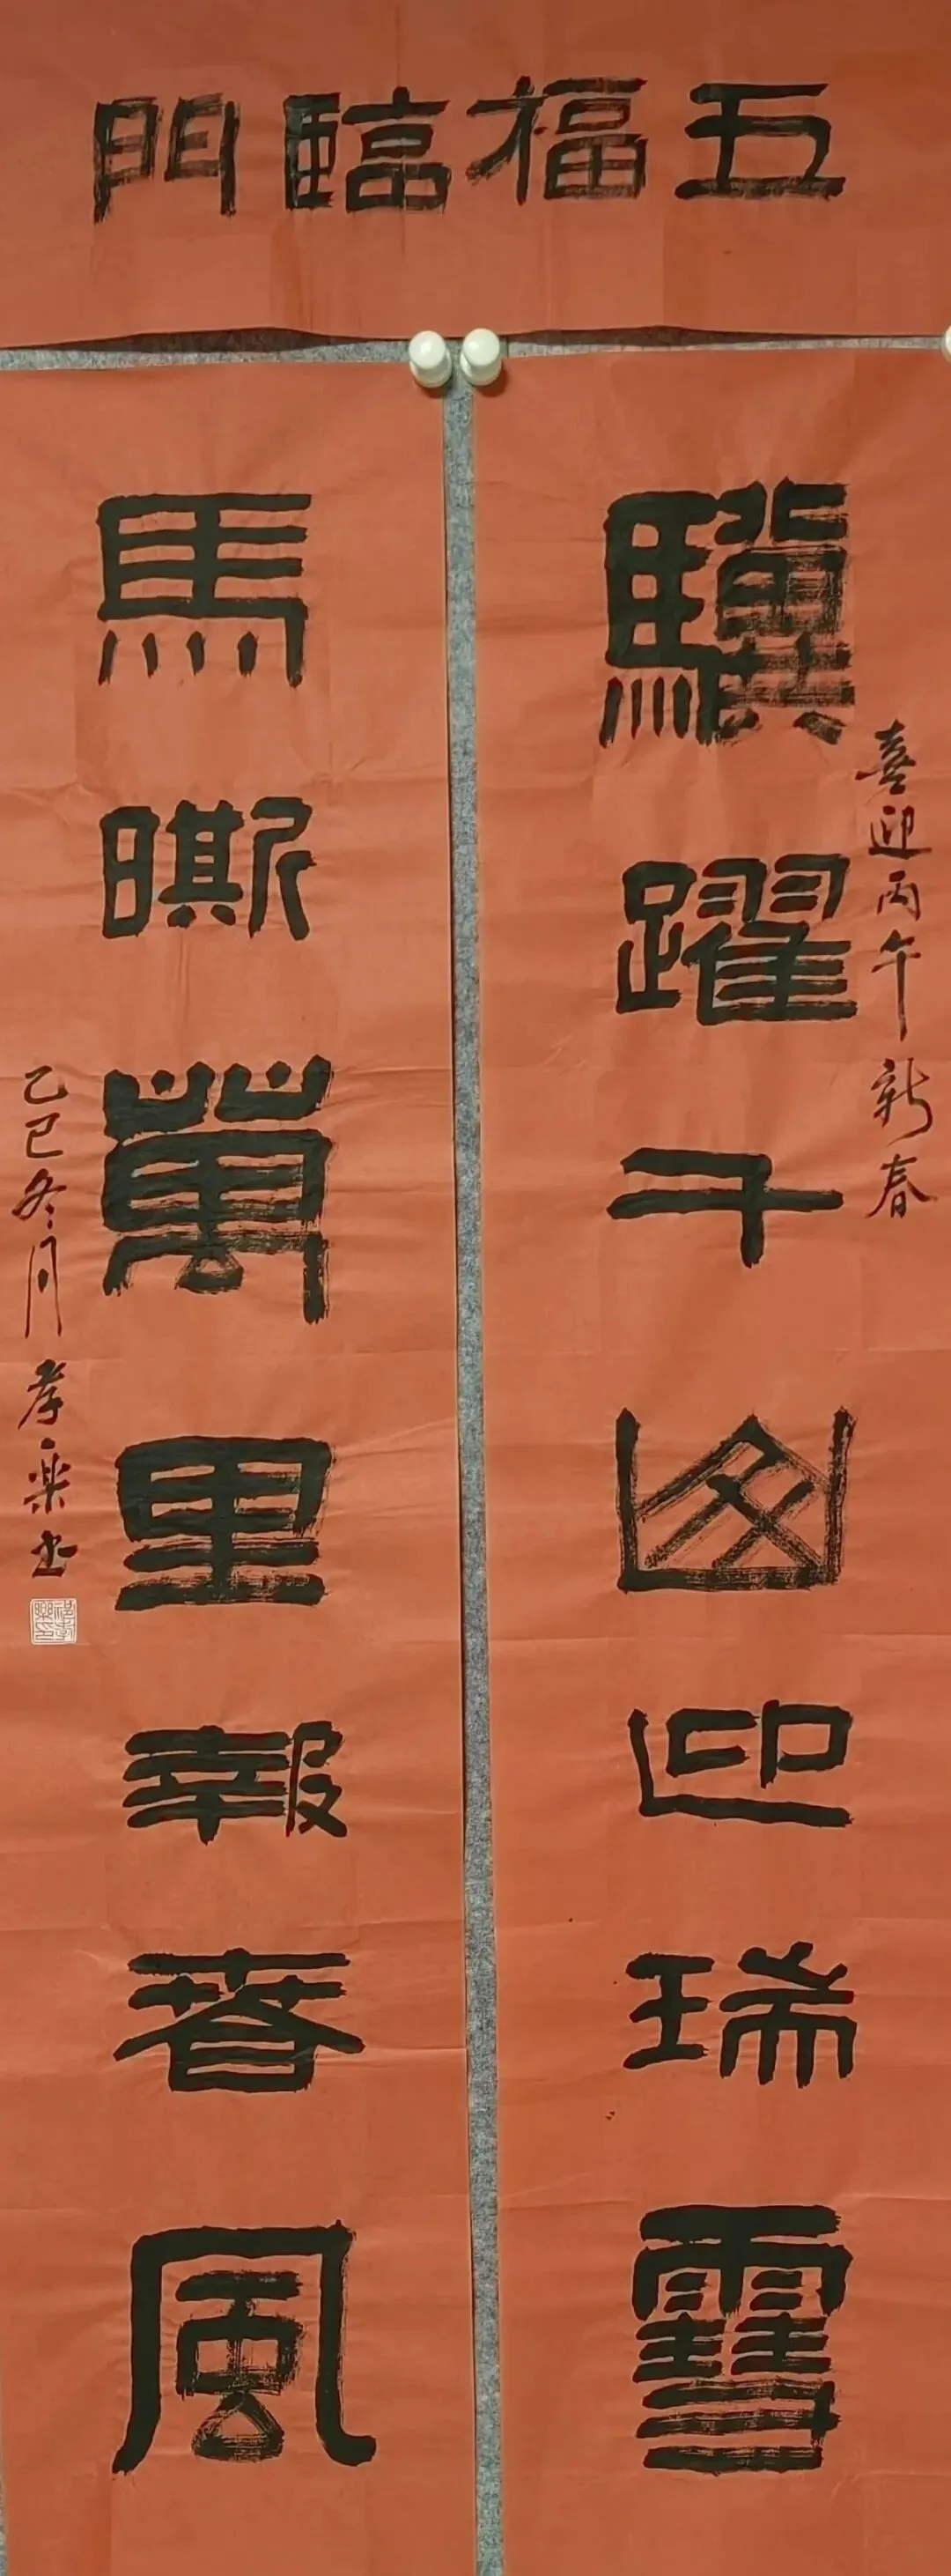 五福臨門
驥躍千山迎瑞雪
喜迎丙午新春
馬嘶萬里報春風
乙巳冬月孝楽书